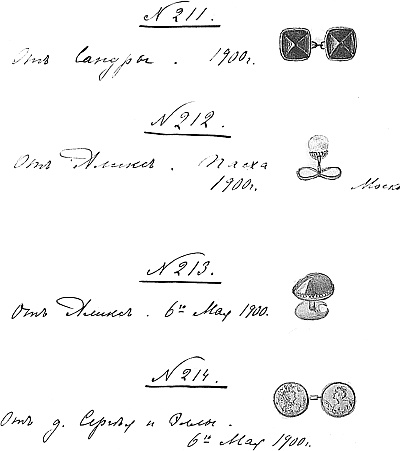 N 211.
Отъ Сандры. 1900г.
N 212.
Отъ Аликсъ. Пасха
1900г. Моск
N 213.
Отъ Аликсъ. 6го Мая 1900.
N 214.
Отъ д. Сергѣя и Эллы.
6го Мая 1900г.